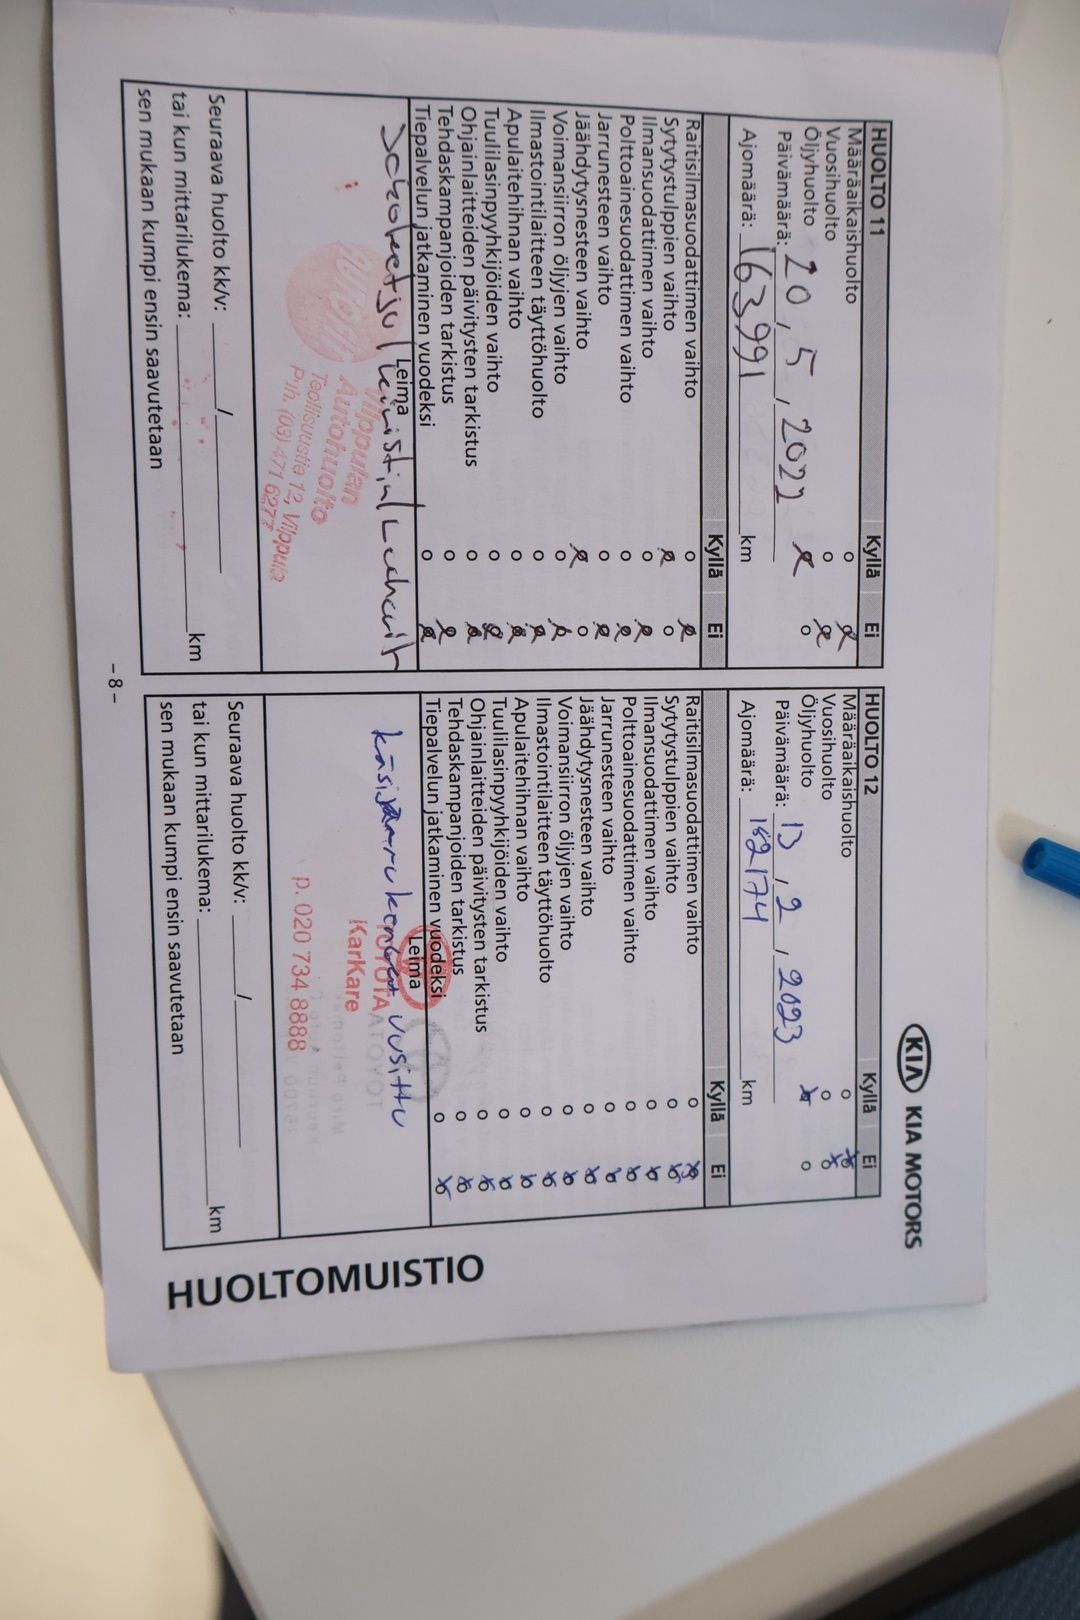 KIA KIA MOTORS
HUOLTOMUISTIO
HUOLTO 11 Kyllä Ei
Määräaikaishuolto
Vuosihuolto
Öljyhuolto
Päivämäärä: 20, 5, 2022
Ajomäärä: 163991 km
Kyllä Ei
Raitisilmasuodattimen vaihto
Sytytystulppien vaihto
Ilmansuodattimen vaihto
Polttoainesuodattimen vaihto
Jarrunesteen vaihto
Jäähdytysnesteen vaihto
Voimansiirron öljyjen vaihto
Ilmastointilaitteen täyttöhuolto
Apulaitehihnan vaihto
Tuulilasinpyyhkijöiden vaihto
Ohjainlaitteiden päivitysten tarkistus
Tehdaskampanjoiden tarkistus
Tiepalvelun jatkaminen vuodeksi
Leima
Vilppulan
Autohuolto
Teollisuustie 12, Vilppula
Puh. (03) 471 6277
Seuraava huolto kk/v: /
tai kun mittarilukema: km
sen mukaan kumpi ensin saavutetaan
HUOLTO 12 Kyllä Ei
Määräaikaishuolto
Vuosihuolto
Öljyhuolto
Päivämäärä: 13, 2, 2023
Ajomäärä: 182174 km
Kyllä Ei
Raitisilmasuodattimen vaihto
Sytytystulppien vaihto
Ilmansuodattimen vaihto
Polttoainesuodattimen vaihto
Jarrunesteen vaihto
Jäähdytysnesteen vaihto
Voimansiirron öljyjen vaihto
Ilmastointilaitteen täyttöhuolto
Apulaitehihnan vaihto
Tuulilasinpyyhkijöiden vaihto
Ohjainlaitteiden päivitysten tarkistus
Tehdaskampanjoiden tarkistus
Tiepalvelun jatkaminen vuodeksi
Leima
käsijarrukengät uusittu
TOYOTA
KarKare
p. 020 734 8888
Seuraava huolto kk/v: /
tai kun mittarilukema: km
sen mukaan kumpi ensin saavutetaan
- 8 -